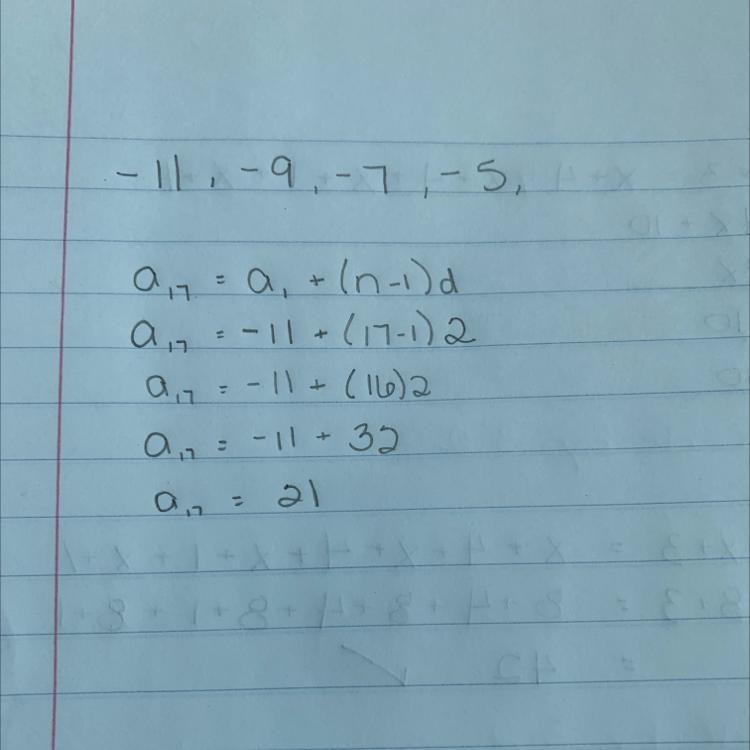 -11, -9, -7, -5,
a₁₇ = a₁ + (n-1)d
a₁₇ = -11 + (17-1)2
a₁₇ = -11 + (16)2
a₁₇ = -11 + 32
a₁₇ = 21